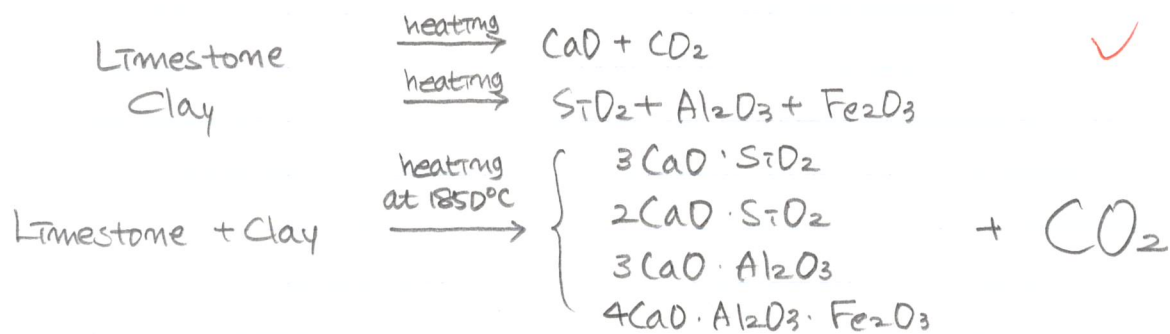 Limestone heating → CaO + CO₂ ✓
Clay heating → SiO₂ + Al₂O₃ + Fe₂O₃
Limestone + Clay heating at 1850°C → { 3CaO·SiO₂
2CaO·SiO₂ + CO₂
3CaO·Al₂O₃
4CaO·Al₂O₃·Fe₂O₃